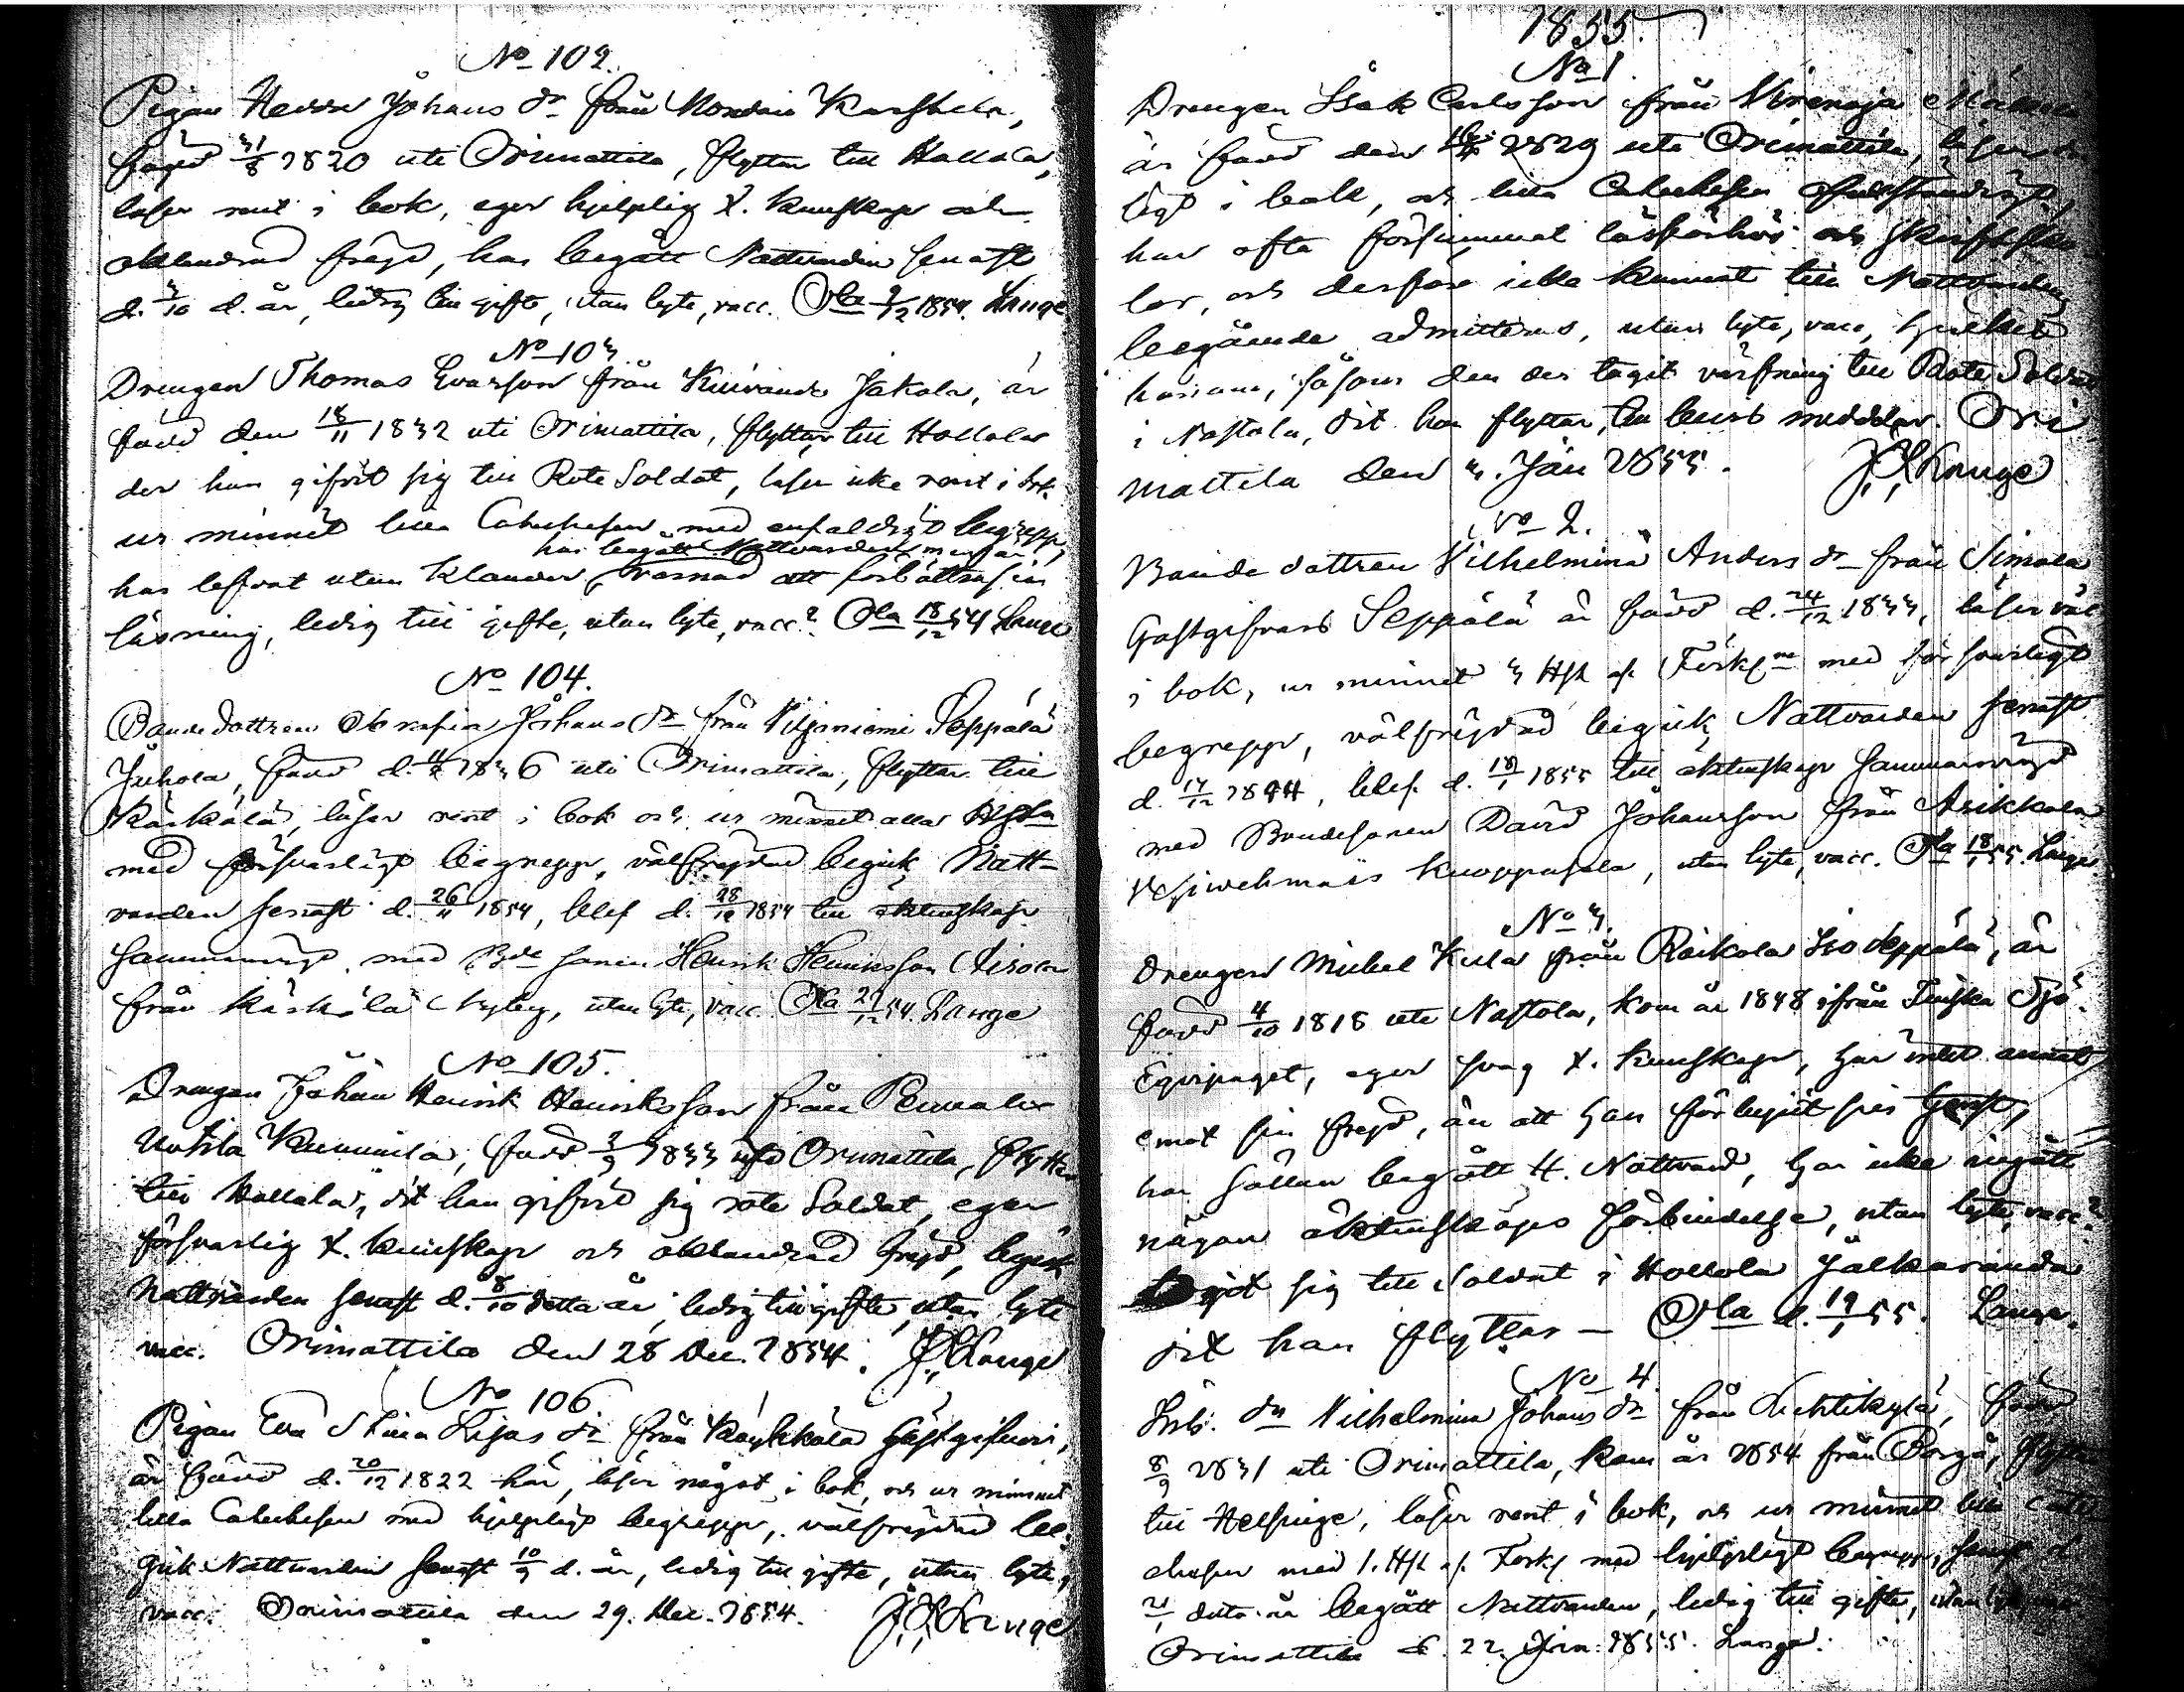 No 102.
Pigan Johans dr från Karkkila,
född 31/8 1820 uti Orimattila, flyttar till Hollola,
läser rent i bok, eger hjelplig X. kunskap och
oklandrad frejd, har begått Nattvarden senast
d. 3/10 d. år, ledig till gifte, utan lyte, vacc. Ola 9/12 1854. Lange
No 103.
Drengen Thomas Evasson från Jakola, är
född den 18/11 1832 uti Orimattila, flyttar till Hollola
der han gifvit sig till Rote Soldat, läser icke rent i bok
ur minnet lilla Catechesen med enfaldigt begrepp,
har begått Nattvarden
har lefvat utan klander, varnad att förbättra sin
läsning, ledig till gifte, utan lyte, vacc? Ola 18/12 54 Lange
No 104.
Bonde dottren Serafia Johans dr från Viljaniemi Seppälä
Juhola, född d. 1836 uti Orimattila, flyttar till
Kärkälä, läser rent i bok och ur minnet alla
med försvarligt begrepp, välfrejdad begick Natt-
varden senast d. 26/11 1854, blef d. 28/12 1854 till äktenskap
sammanvigd med Bde sonen Henrik Henriksson
från Kärkölä utan lyte, vacc. Ola 29/12 54. Lange
No 105.
Drengen Johan Henrik Henriksson från Pennala
Uotila född 2/9 1833 uti Orimattila, flyttar
till Hollola, dit han gifvit sig rote Soldat, eger
försvarlig X. kunskap och oklandrad frejd, begick
Nattvarden senast d. 8/10 detta år, ledig till gifte, utan lyte
vacc. Orimattila den 28 Dec. 1854. Lange
No 106
Pigan Eva Stina Lisas dr från Gästgifveri,
är född d. 20/12 1822 här, läser något i bok, och ur minnet
lilla Catechesen med hjelpligt begrepp, välfrejdad be-
gick Nattvarden senast 10/9 d. år, ledig till gifte, utan lyte,
vacc. Orimattila den 29. Dec. 1854. Lange
1855.
No 1.
Drengen Isak Carlsson från Virenoja
är född den 1829 uti Orimattila, läser
ligt i bok, och lilla Catechesen ofullständigt,
har ofta försummat läsförhör och skriftsko-
lor, och derföre icke kunnat till Nattvardens
begående admitteras, utan lyte, vacc, hvilket
honom, såsom den der tagit värfning till Rote Soldat
i Nastola, dit han flyttar, till bevis meddelar. Ori
mattila den 3. Jan 1855. Lange
No 2.
Bonde dottren Vilhelmina Anders dr från Simola
Gästgifvars Seppälä är född d. 24/12 1833, läser väl
i bok, ur minnet 3 Hst af Förkl.ne med försvarligt
begrepp, välfrejdad begick Nattvarden senast
d. 17/12 1854, blef d. 18/1 1855 till äktenskap sammanvigd
med Bondesonen David Johansson från Asikkala
utan lyte, vacc. Ola 18/1 55. Lange
No 3.
Drengen Michel Kula från Räikola Iso Seppälä, är
född 4/10 1818 uti Nastola, kom år 1848 ifrån Finska Sjö
Equipaget, eger svag X. kunskap, har intet annat
emot sin frejd, än att han förbrutit sin
har sällan begått H. Nattvard, har icke ingått
någon äktenskaps förbindelse, utan lyte, vacc?
sig till Soldat i Hollola Jalkaranda
dit han flyttar — Ola d. 19/1 55. Lange.
No 4.
Inh: dn Vilhelmina Johans dr från Lichtikylä, född
8/9 1831 uti Orimattila, kom år 1854 från Borgå, flyttar
till Helsinge, läser rent i bok, och ur minnet lilla Cate
chesen med 1. Hst af Förkl med hjelpligt begrepp, senast d
21/1 detta år begått Nattvarden, ledig till gifte, utan lyte, vacc
Orimattila d. 22. Jan. 1855. Lange.